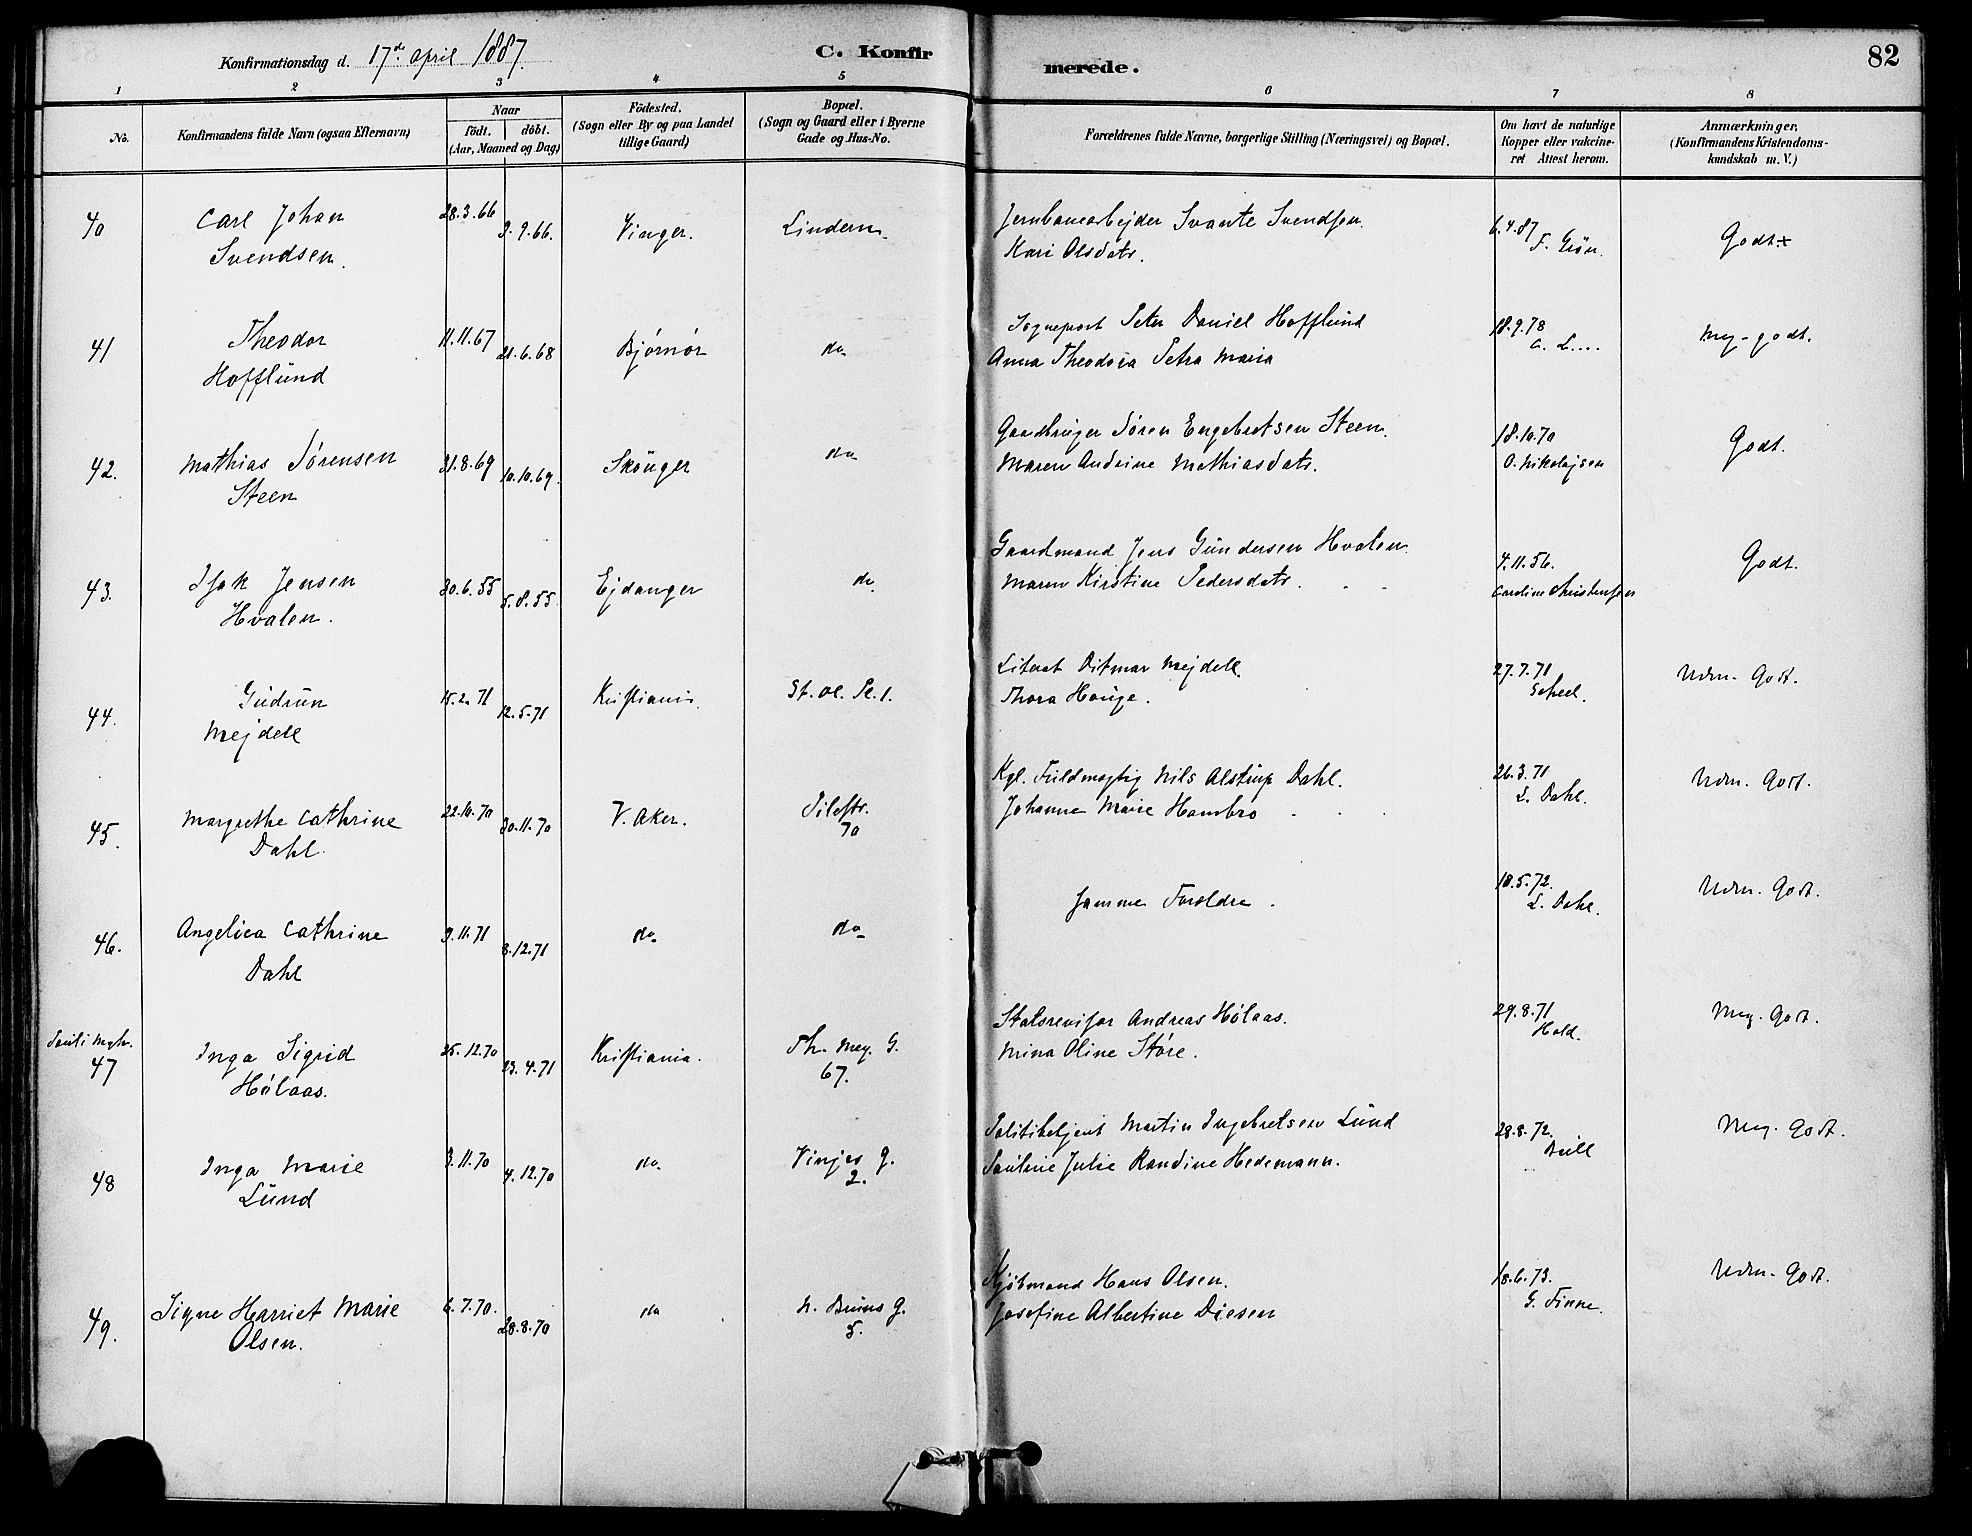 Konfirmationsdag d. 17de april 1887. C. Konfirmerede. 82
1 2 3 4 5 6 7 8
No. Konfirmandens fulde Navn (ogsaa Efternavn) Naar födt. döbt. (Aar, Maaned og Dag) Födested. (Sogn eller By og paa Landet tillige Gaard) Bopæl. (Sogn og Gaard eller i Byerne Gade og Hus-No. Forældrenes fulde Navne, borgerlige Stilling (Næringsvei) og Bopæl. Om havt de naturlige Kopper eller vakcineret Attest herom. Anmærkninger. (Konfirmandens Kristendomskundskab m. V.)
40 Carl Johan 28.3.66 9.9.66. Vinger. Lindern Jernbanearbejder Svante Svendsen. 6.4.87 Godt.
Svendsen. Kari Olsdatr. F. Grön.
41 Theodor 11.11.67 21.6.68 Bjørnør do Sogneprest Peter Daniel Hofflund 18.9.78 Meg. godt.
Hofflund Anna Theodora Petra Maria C. L....
42. Mathias Sørensen 31.8.69 10.10.69. Skönger do Gaardbruger Sören Engebretsen Steen. 18.10.70 Godt.
Steen Maren Andrine Mathiasdatr. O. Nikolajsen
43. Isak Jensen 30.6.55 5.8.55 Ejdanger do Gaardmand Jens Gundersen Hvalen 4.11.56. Godt.
Hvalen. Maren Kirstine Pedersdatr. Caroline Christensen
44. Gudrun 15.2.71 12.5.71 Kristiania St. Ol. Pl. 1. Literat Ditmar Mejdell. 27.7.71 Udm. Godt.
Mejdell Thora Hauge. Scheel.
45. Margrethe Cathrine 22.10.70 30.11.70 V. Aker. Pilestr. 70 Kgl. Fuldmægtig Nils Alstrup Dahl. 26.3.71 Udm. Godt.
Dahl. Johanne Marie Hambro L. Dahl.
46. Angelica Cathrine 9.11.71 8.12.71 do do Samme Forældre. 18.5.72. Udm. Godt.
Dahl L. Dahl.
47 Inga Sigrid 25.12.70 23.4.71 Kristiania. Th. Mey. G. 67. Statsrevisor Andreas Hølaas. 29.8.71 Meg. Godt.
Hølaas. Mina Oline Støre. Hald.
48 Inga Marie 3.11.70 4.12.70 do Vinjes g. 2. Politibetjent Martin Ingebretsen Lund 28.8.72. Meg. Godt.
Lund Pauline Julie Randine Hedemann. Bull
49. Signe Harriet Marie 6.7.70. 28.8.70 do N. Bruns g. 5. Kjöbmand Hans Olsen. 18.6.73. Udm. Godt.
Olsen. Josefine Albertine Diesen G. Finne.